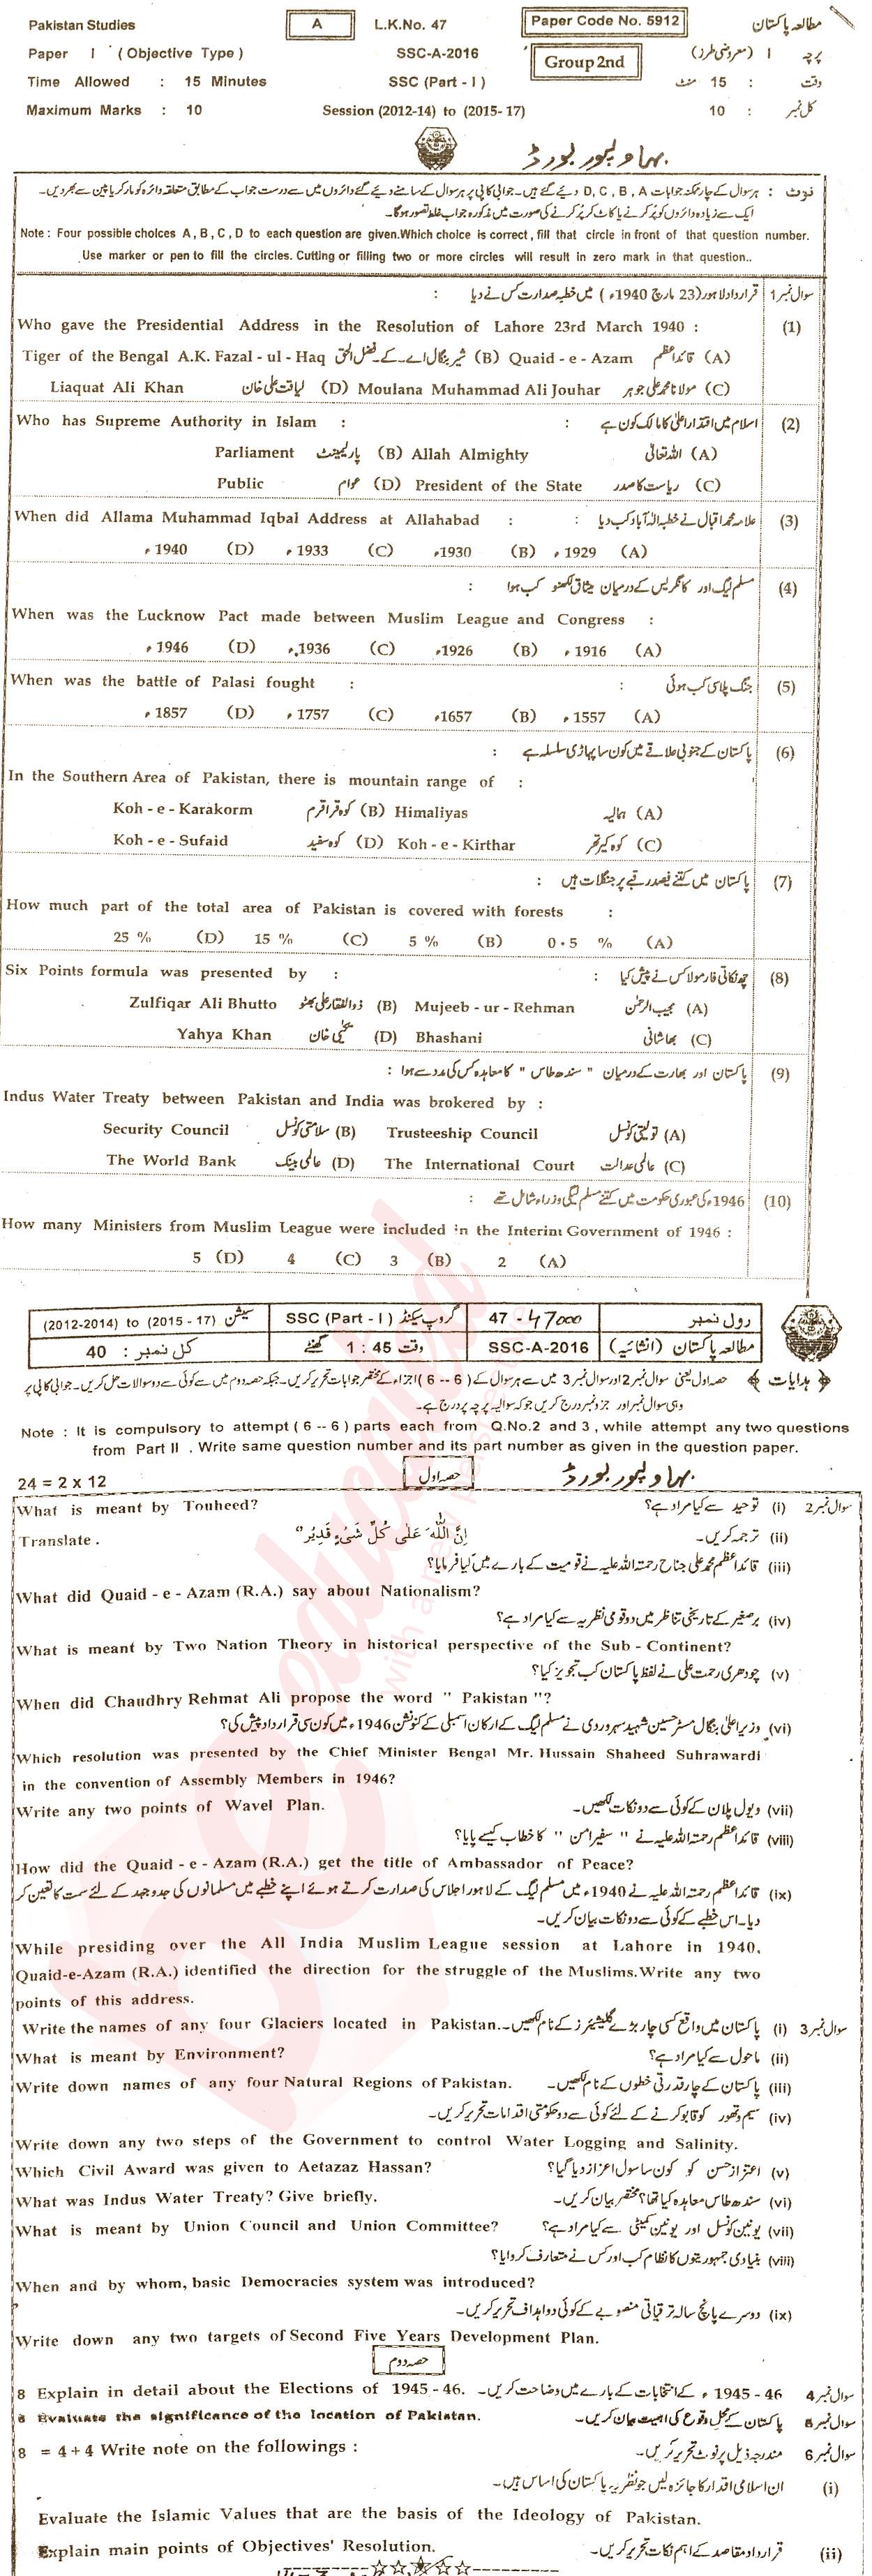 Pakistan Studies A L.K.No. 47 Paper Code No. 5912 مطالعہ پاکستان
Paper I ( Objective Type ) SSC-A-2016 Group 2nd پرچہ I (معروضی طرز)
Time Allowed : 15 Minutes SSC (Part - I ) وقت : 15 منٹ
Maximum Marks : 10 Session (2012-14) to (2015- 17) کل نمبر : 10
بہاولپور بورڈ
نوٹ : ہر سوال کے چار ممکنہ جوابات D, C, B, A دیئے گئے ہیں۔ جوابی کاپی پر ہر سوال کے سامنے دیئے گئے دائروں میں سے درست جواب کے مطابق متعلقہ دائرہ کو مارکر یا پین سے بھر دیں۔
ایک سے زیادہ دائروں کو پُر کرنے یا کاٹ کر پُر کرنے کی صورت میں مذکورہ جواب غلط تصور ہوگا۔
Note : Four possible choices A , B , C , D to each question are given.Which choice is correct , fill that circle in front of that question number.
Use marker or pen to fill the circles. Cutting or filling two or more circles will result in zero mark in that question..
سوال نمبر 1 قرارداد لاہور (23 مارچ 1940ء ) میں خطبہ صدارت کس نے دیا :
Who gave the Presidential Address in the Resolution of Lahore 23rd March 1940 : (1)
Tiger of the Bengal A.K. Fazal - ul - Haq شیر بنگال اے۔ کے۔ فضل الحق (B) Quaid - e - Azam قائداعظم (A)
Liaquat Ali Khan لیاقت علی خان (D) Moulana Muhammad Ali Jouhar مولانا محمد علی جوہر (C)
Who has Supreme Authority in Islam : اسلام میں اقتدار اعلیٰ کا مالک کون ہے : (2)
Parliament پارلیمنٹ (B) Allah Almighty اللہ تعالیٰ (A)
Public عوام (D) President of the State ریاست کا صدر (C)
When did Allama Muhammad Iqbal Address at Allahabad : علامہ محمد اقبال نے خطبہ الہ آباد کب دیا : (3)
1940ء (D) 1933ء (C) 1930ء (B) 1929ء (A)
مسلم لیگ اور کانگریس کے درمیان میثاق لکھنو کب ہوا : (4)
When was the Lucknow Pact made between Muslim League and Congress :
1946ء (D) 1936ء (C) 1926ء (B) 1916ء (A)
When was the battle of Palasi fought : جنگ پلاسی کب ہوئی : (5)
1857ء (D) 1757ء (C) 1657ء (B) 1557ء (A)
پاکستان کے جنوبی علاقے میں کون سا پہاڑی سلسلہ ہے : (6)
In the Southern Area of Pakistan, there is mountain range of :
Koh - e - Karakorm کوہ قراقرم (B) Himaliyas ہمالیہ (A)
Koh - e - Sufaid کوہ سفید (D) Koh - e - Kirthar کوہ کیرتھر (C)
پاکستان میں کتنے فیصد رقبے پر جنگلات ہیں : (7)
How much part of the total area of Pakistan is covered with forests :
25 % (D) 15 % (C) 5 % (B) 0.5 % (A)
Six Points formula was presented by : چھ نکاتی فارمولا کس نے پیش کیا : (8)
Zulfiqar Ali Bhutto ذوالفقار علی بھٹو (B) Mujeeb - ur - Rehman مجیب الرحمٰن (A)
Yahya Khan یحیٰی خان (D) Bhashani بھاشانی (C)
پاکستان اور بھارت کے درمیان " سندھ طاس " کا معاہدہ کس کی مدد سے ہوا : (9)
Indus Water Treaty between Pakistan and India was brokered by :
Security Council سلامتی کونسل (B) Trusteeship Council تولیتی کونسل (A)
The World Bank عالمی بینک (D) The International Court عالمی عدالت (C)
1946ء کی عبوری حکومت میں کتنے مسلم لیگی وزراء شامل تھے : (10)
How many Ministers from Muslim League were included in the Interim Government of 1946 :
5 (D) 4 (C) 3 (B) 2 (A)
(2012-2014) to (2015 - 17) سیشن SSC (Part - I ) گروپ سیکنڈ 47 - 47000 رول نمبر
کل نمبر : 40 وقت 1 : 45 گھنٹے SSC-A-2016 مطالعہ پاکستان (انشائیہ)
ہدایات حصہ اول یعنی سوال نمبر 2 اور سوال نمبر 3 میں سے ہر سوال کے ( 6 -- 6 ) اجزاء کے مختصر جوابات تحریر کریں۔ جبکہ حصہ دوم میں سے کوئی سے دو سوالات حل کریں۔ جوابی کاپی پر
وہی سوال نمبر اور جز و نمبر درج کریں جو کہ سوالیہ پرچہ پر درج ہے۔
Note : It is compulsory to attempt ( 6 -- 6 ) parts each from Q.No.2 and 3 , while attempt any two questions
from Part II . Write same question number and its part number as given in the question paper.
24 = 2 x 12 حصہ اول بہاولپور بورڈ
What is meant by Touheed? سوال نمبر 2 (i) توحید سے کیا مراد ہے؟
Translate . إِنَّ اللّٰهَ عَلٰى كُلِّ شَىْءٍ قَدِيْر (ii) ترجمہ کریں۔
(iii) قائداعظم محمد علی جناح رحمتہ اللہ علیہ نے قومیت کے بارے میں کیا فرمایا؟
What did Quaid - e - Azam (R.A.) say about Nationalism?
(iv) برصغیر کے تاریخی تناظر میں دو قومی نظریہ سے کیا مراد ہے؟
What is meant by Two Nation Theory in historical perspective of the Sub - Continent?
(v) چودھری رحمت علی نے لفظ پاکستان کب تجویز کیا؟
When did Chaudhry Rehmat Ali propose the word " Pakistan "?
(vi) وزیر اعلیٰ بنگال مسٹر حسین شہید سہروردی نے مسلم لیگ کے ارکان اسمبلی کے کنونشن 1946ء میں کون سی قرارداد پیش کی؟
Which resolution was presented by the Chief Minister Bengal Mr. Hussain Shaheed Suhrawardi
in the convention of Assembly Members in 1946?
Write any two points of Wavel Plan. (vii) ویول پلان کے کوئی سے دو نکات لکھیں۔
(viii) قائداعظم رحمتہ اللہ علیہ نے " سفیر امن " کا خطاب کیسے پایا؟
How did the Quaid - e - Azam (R.A.) get the title of Ambassador of Peace?
(ix) قائداعظم رحمتہ اللہ علیہ نے 1940ء میں مسلم لیگ کے لاہور اجلاس کی صدارت کرتے ہوئے اپنے خطبے میں مسلمانوں کی جدوجہد کے لئے سمت کا تعین کر
دیا۔ اس خطبے کے کوئی سے دو نکات بیان کریں۔
While presiding over the All India Muslim League session at Lahore in 1940.
Quaid-e-Azam (R.A.) identified the direction for the struggle of the Muslims.Write any two
points of this address.
Write the names of any four Glaciers located in Pakistan. سوال نمبر 3 (i) پاکستان میں واقع کسی چار بڑے گلیشیئرز کے نام لکھیں۔
What is meant by Environment? (ii) ماحول سے کیا مراد ہے؟
Write down names of any four Natural Regions of Pakistan. (iii) پاکستان کے چار قدرتی خطوں کے نام لکھیں۔
(iv) سیم و تھور کو قابو کرنے کے لئے کوئی سے دو حکومتی اقدامات تحریر کریں۔
Write down any two steps of the Government to control Water Logging and Salinity.
Which Civil Award was given to Aetazaz Hassan? (v) اعتزاز حسن کو کون سا سول اعزاز دیا گیا؟
What was Indus Water Treaty? Give briefly. (vi) سندھ طاس معاہدہ کیا تھا؟ مختصر بیان کریں۔
What is meant by Union Council and Union Committee? (vii) یونین کونسل اور یونین کمیٹی سے کیا مراد ہے؟
(viii) بنیادی جمہوریتوں کا نظام کب اور کس نے متعارف کروایا؟
When and by whom, basic Democracies system was introduced?
(ix) دوسرے پانچ سالہ ترقیاتی منصوبے کے کوئی دو اہداف تحریر کریں۔
Write down any two targets of Second Five Years Development Plan.
حصہ دوم
8 Explain in detail about the Elections of 1945 - 46. سوال نمبر 4 1945 - 46ء کے انتخابات کے بارے میں وضاحت کریں۔
8 Evaluate the significance of the location of Pakistan. سوال نمبر 5 پاکستان کے محل وقوع کی اہمیت بیان کریں۔
8 = 4 + 4 Write note on the followings : سوال نمبر 6 مندرجہ ذیل پر نوٹ تحریر کریں۔
(i) ان اسلامی اقدار کا جائزہ لیں جو نظریہ پاکستان کی اساس ہیں۔
Evaluate the Islamic Values that are the basis of the Ideology of Pakistan.
Explain main points of Objectives' Resolution. (ii) قرارداد مقاصد کے اہم نکات تحریر کریں۔
educated